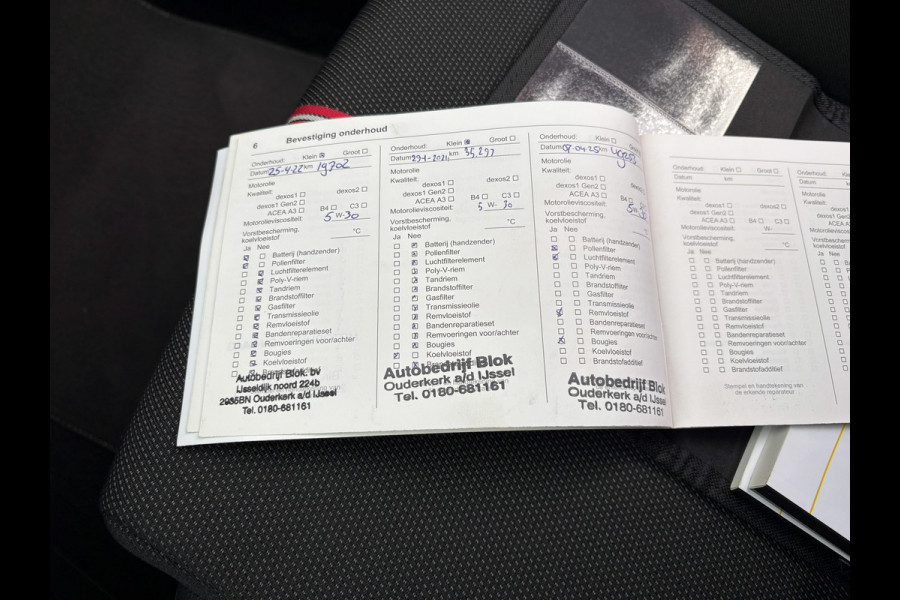 6
Bevestiging onderhoud
Onderhoud: Klein Groot
Datum 25-4-22 km 19702
Motorolie
Kwaliteit:
dexos1 dexos2
dexos1 Gen2
ACEA A3 B4 C3
Motorolieviscositeit: 5 W- 30
Vorstbescherming,
koelvloeistof °C
Ja Nee
Batterij (handzender)
Pollenfilter
Luchtfilterelement
Poly-V-riem
Tandriem
Brandstoffilter
Gasfilter
Transmissieolie
Remvloeistof
Bandenreparatieset
Remvoeringen voor/achter
Bougies
Koelvloeistof
Autobedrijf Blok bv
IJsseldijk noord 224b
2935BN Ouderkerk a/d IJssel
Tel. 0180-681161
Onderhoud: Klein Groot
Datum km 35,297
Motorolie
Kwaliteit:
dexos1 dexos2
dexos1 Gen2
ACEA A3 B4 C3
Motorolieviscositeit: 5 W- 30
Vorstbescherming,
koelvloeistof °C
Ja Nee
Batterij (handzender)
Pollenfilter
Luchtfilterelement
Poly-V-riem
Tandriem
Brandstoffilter
Gasfilter
Transmissieolie
Remvloeistof
Bandenreparatieset
Remvoeringen voor/achter
Bougies
Koelvloeistof
Autobedrijf Blok
Ouderkerk a/d IJssel
Tel. 0180-681161
Onderhoud: Klein
Datum km
Motorolie
Kwaliteit:
dexos1
dexos1 Gen2
ACEA A3 B4
Motorolieviscositeit: 5 W- 30
Vorstbescherming,
koelvloeistof °C
Ja Nee
Batterij (handzender)
Pollenfilter
Luchtfilterelement
Poly-V-riem
Tandriem
Brandstoffilter
Gasfilter
Transmissieolie
Remvloeistof
Bandenreparatieset
Remvoeringen voor/achter
Bougies
Koelvloeistof
Brandstofadditief
Autobedrijf Blok
Ouderkerk a/d IJssel
Tel. 0180-681161
Onderhoud: Klein Groot
Datum km
Motorolie
Kwaliteit:
dexos1 dexos2
dexos1 Gen2
ACEA A3 B4 C3
Motorolieviscositeit: W-
Vorstbescherming,
koelvloeistof °C
Ja Nee
Batterij (handzender)
Pollenfilter
Luchtfilterelement
Poly-V-riem
Tandriem
Brandstoffilter
Gasfilter
Transmissieolie
Remvloeistof
Bandenreparatieset
Remvoeringen voor/achter
Bougies
Koelvloeistof
Brandstofadditief
Stempel en handtekening van
de erkende reparateur
Onderhoud:
Datum
Motorolie
Kwaliteit:
Ja Nee